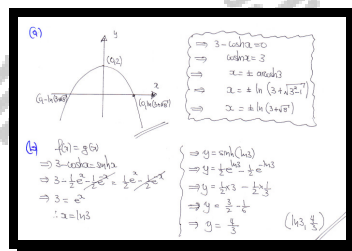 (a)
y
(0,2)
x
⇒ 3 - coshx = 0
⇒ coshx = 3
⇒ x = ± arcosh3
⇒ x = ± ln (3+√3²-1)
⇒ x = ± ln (3+√8)
(b) f(x) = g(x)
⇒ 3 - coshx = sinhx
⇒ 3 - ½eˣ - ½e⁻ˣ = ½eˣ - ½e⁻ˣ
⇒ 3 = eˣ
∴ x = ln3
⇒ y = sinh(ln3)
⇒ y = ½e^ln3 - ½e^-ln3
⇒ y = ½×3 - ½×⅓
⇒ y = 3/2 - 1/6
⇒ y = 4/3
(ln3, 4/3)